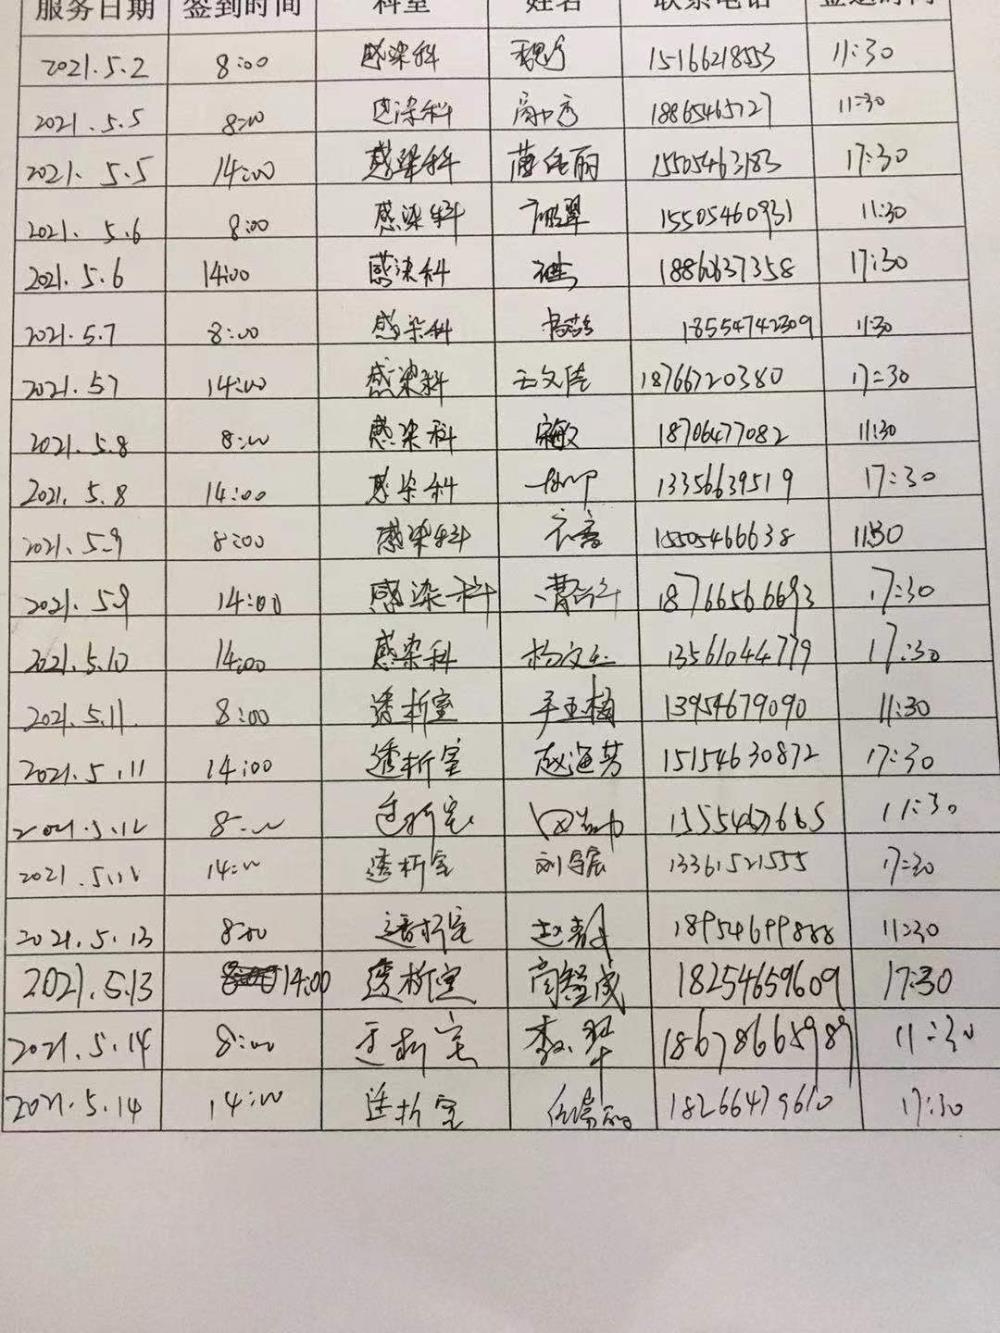 服务日期 签到时间 科室 姓名 联系电话 签退时间
2021.5.2 8:00 感染科 15166218553 11:30
2021.5.5 8:00 感染科 18865465727 11:30
2021.5.5 14:00 感染科 15505463183 17:30
2021.5.6 8:00 感染科 15505460931 11:30
2021.5.6 14:00 感染科 17:30
2021.5.7 8:00 感染科 18554742309 11:30
2021.5.7 14:00 感染科 王文佳 18766720380 17:30
2021.5.8 8:00 感染科 18706477082 11:30
2021.5.8 14:00 感染科 13356639519 17:30
2021.5.9 8:00 感染科 15505466638 11:30
2021.5.9 14:00 感染科 18766566693 17:30
2021.5.10 14:00 感染科 13561044779 17:30
2021.5.11. 8:00 透析室 13954679090 11:30
2021.5.11 14:00 透析室 赵海芳 15154630872 17:30
2021.5.12 8:00 透析室 11:30
2021.5.12 14:00 透析室 13361521555 17:30
2021.5.13 8:00 透析室 18954699888 11:30
2021.5.13 14:00 透析室 18254659609 17:30
2021.5.14 8:00 透析室 18678665989 11:30
2021.5.14 14:00 透析室 18266479610 17:30